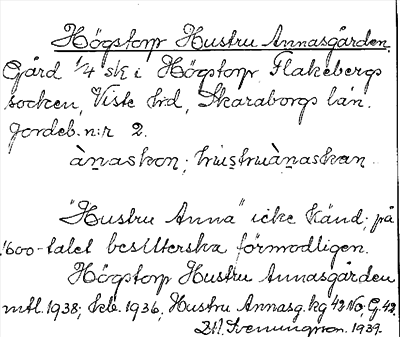 Högstorp Hustru Annasgården.
Gård 1/4 skt i Högstorp, Flakebergs
socken, Viste hrd, Skaraborgs län.
Jordeb. n:r 2.
"Hustru Anna" icke känd; på
1600-talet besutterska förmodligen.
Högstorp Hustru Annasgården
mtl. 1938; 1936, Hustru Annasg. kg 42 No, G. 42.
1939.